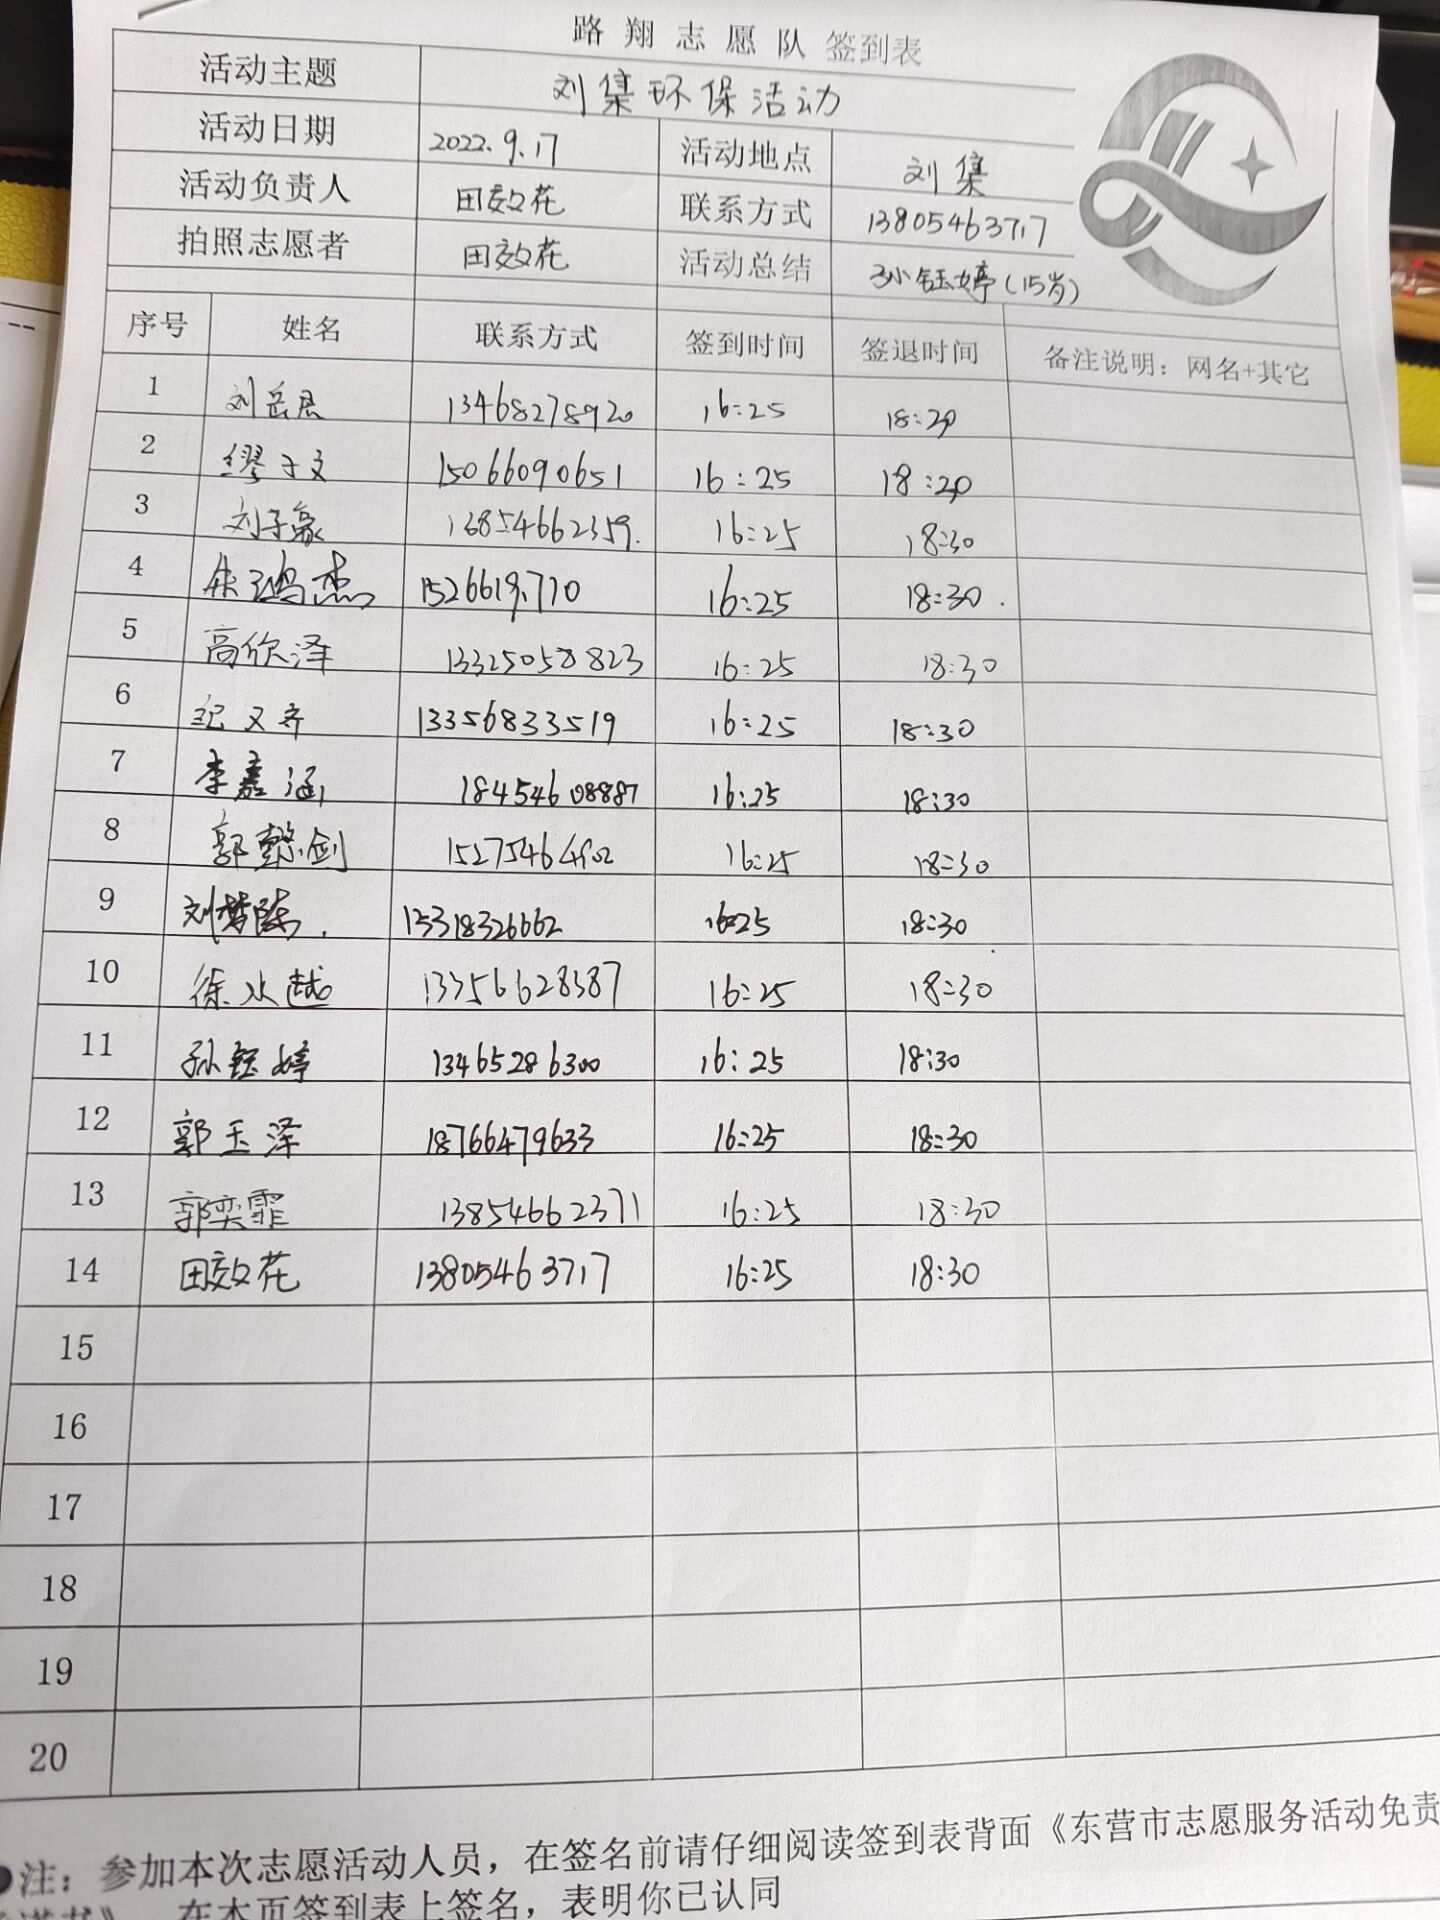 路翔志愿队 签到表
活动主题 刘集环保活动
活动日期 2022.9.17 活动地点 刘集
活动负责人 田效花 联系方式 13805463717
拍照志愿者 田效花 活动总结 孙钰婷(15岁)
序号 姓名 联系方式 签到时间 签退时间 备注说明：网名+其它
1 刘岳恩 13468278920 16:25 18:20
2 缪子文 15066090651 16:25 18:20
3 刘子豪 13854662359. 16:25 18:30
4 鸿杰 16:25 18:30.
5 高欣泽 13325058823 16:25 18:30
6 纪又齐 13356833519 16:25 18:30
7 李嘉涵 18454608887 16:25 18:30
8 郭懿剑 16:25 18:30
9 刘梦陈. 15318326662 16:25 18:30
10 徐水越 13356628387 16:25 18:30
11 孙钰婷 13465286300 16:25 18:30
12 郭玉泽 18766479633 16:25 18:30
13 郭奕霏 13854662371 16:25 18:30
14 田效花 13805463717 16:25 18:30
15
16
17
18
19
20
●注：参加本次志愿活动人员，在签名前请仔细阅读签到表背面《东营市志愿服务活动免责
》，在本页签到表上签名，表明你已认同